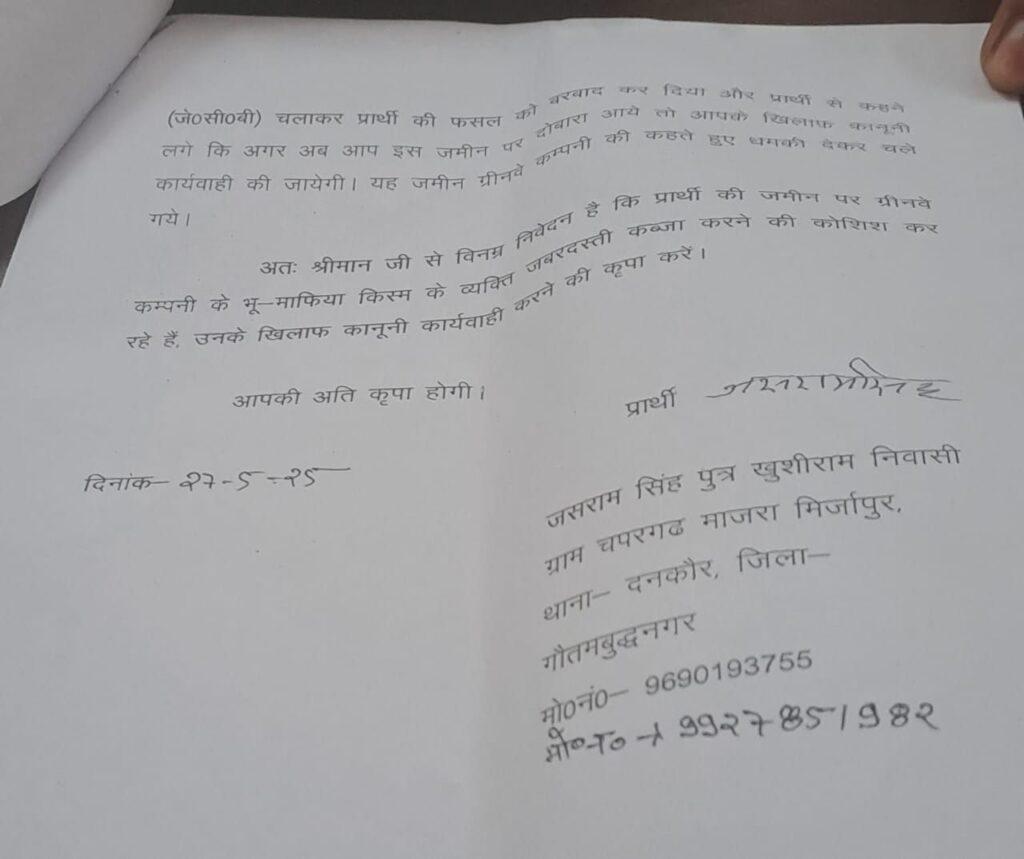 (जे0सी0बी) चलाकर प्रार्थी की फसल को बरबाद कर दिया और प्रार्थी से कहने
लगे कि अगर अब आप इस जमीन पर दोबारा आये तो आपके खिलाफ कानूनी
कार्यवाही की जायेगी। यह जमीन ग्रीनवे कम्पनी की कहते हुए धमकी देकर चले
गये।
अतः श्रीमान जी से विनम्र निवेदन है कि प्रार्थी की जमीन पर ग्रीनवे
कम्पनी के भू–माफिया किस्म के व्यक्ति जबरदस्ती कब्जा करने की कोशिश कर
रहे हैं, उनके खिलाफ कानूनी कार्यवाही करने की कृपा करें।
आपकी अति कृपा होगी।
प्रार्थी जसराम सिंह
दिनांक– 27-5-25
जसराम सिंह पुत्र खुशीराम निवासी
ग्राम चपरगढ माजरा मिर्जापुर,
थाना– दनकौर, जिला–
गौतमबुद्धनगर
मो0नं0– 9690193755
मो०न० → 9927851982